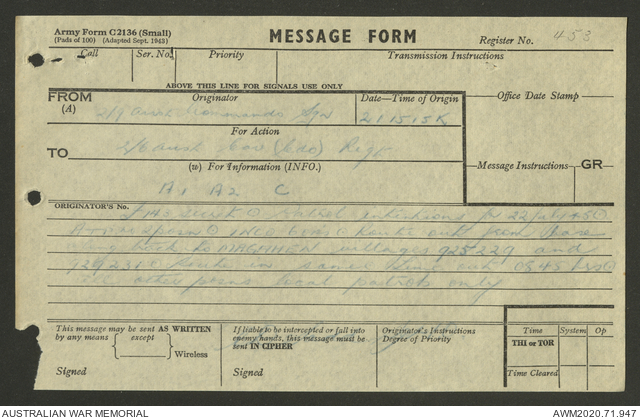 Army Form C2136 (Small)
(Pads of 100) (Adapted Sept. 1943)
MESSAGE FORM
Register No. 453
Call
Ser. No.
Priority
Transmission Instructions
ABOVE THIS LINE FOR SIGNALS USE ONLY
FROM
(A)
Originator
Date—Time of Origin
Office Date Stamp
Aust Commando Sqn
211515K
For Action
TO
2/6 Aust Cav (Cdo) Regt
(w) For Information (INFO.)
Message Instructions
GR
A1 A2 C
ORIGINATOR'S No.
Patrol intentions for 22
Route out from base
along track to villages 925229 and
929231 Route in same 0845 hrs
other posns local patrols only
This message may be sent AS WRITTEN
by any means except
Wireless
Signed
If liable to be intercepted or fall into
enemy hands, this message must be
sent IN CIPHER
Signed
Originator's Instructions
Degree of Priority
Time
System
Op
THI or TOR
Time Cleared
AUSTRALIAN WAR MEMORIAL
AWM2020.71.947